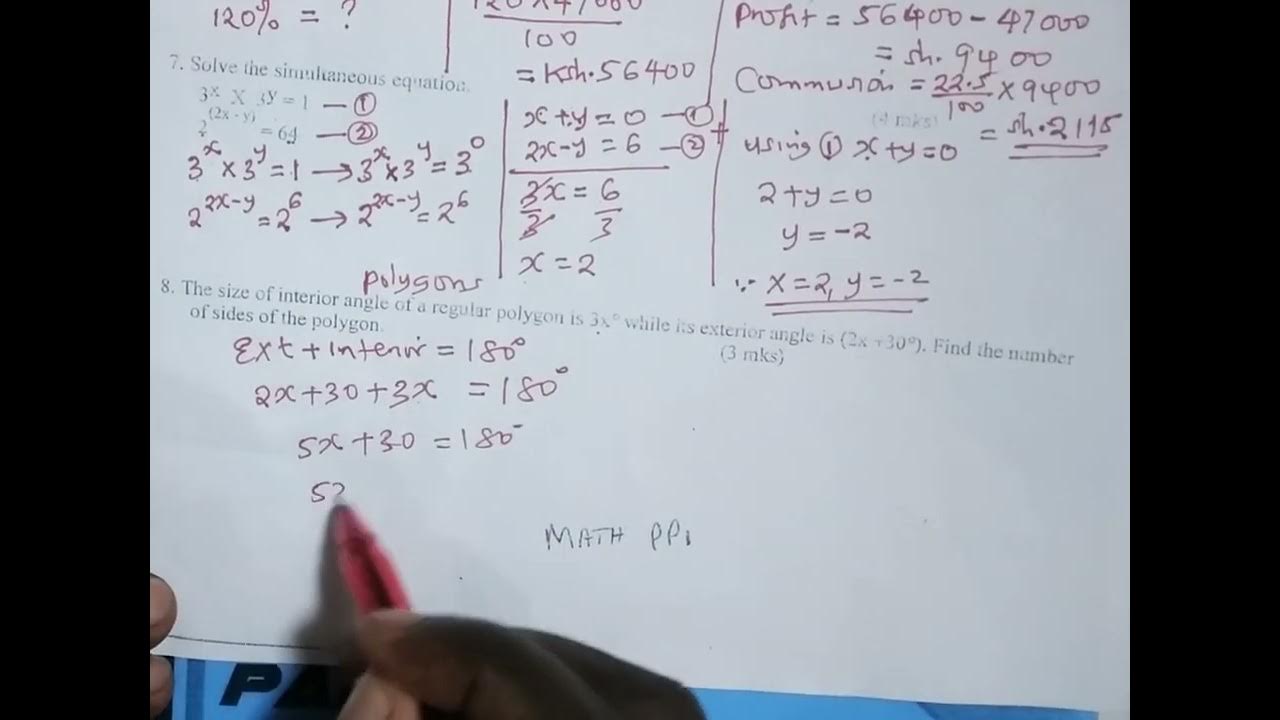 120% = ?
120 x 47000
100
= Ksh. 56400
Profit = 56400 - 47000
= sh. 9400
Commusion = 22.5/100 x 9400
= sh. 2115
7. Solve the simultaneous equation.
3^x X 3^y = 1 — ①
2^(2x - y) = 64 — ②
(4 mks)
3^x x 3^y = 1 → 3^x x 3^y = 3^0
2^2x-y = 2^6 → 2^2x-y = 2^6
x + y = 0 — ①
2x - y = 6 — ② +
3x/3 = 6/3
x = 2
using ① x + y = 0
2 + y = 0
y = -2
∵ x = 2, y = -2
polygons
8. The size of interior angle of a regular polygon is 3x° while its exterior angle is (2x +30°). Find the number
of sides of the polygon.
(3 mks)
Ext + Interior = 180°
2x + 30 + 3x = 180°
5x + 30 = 180°
MATH PP1